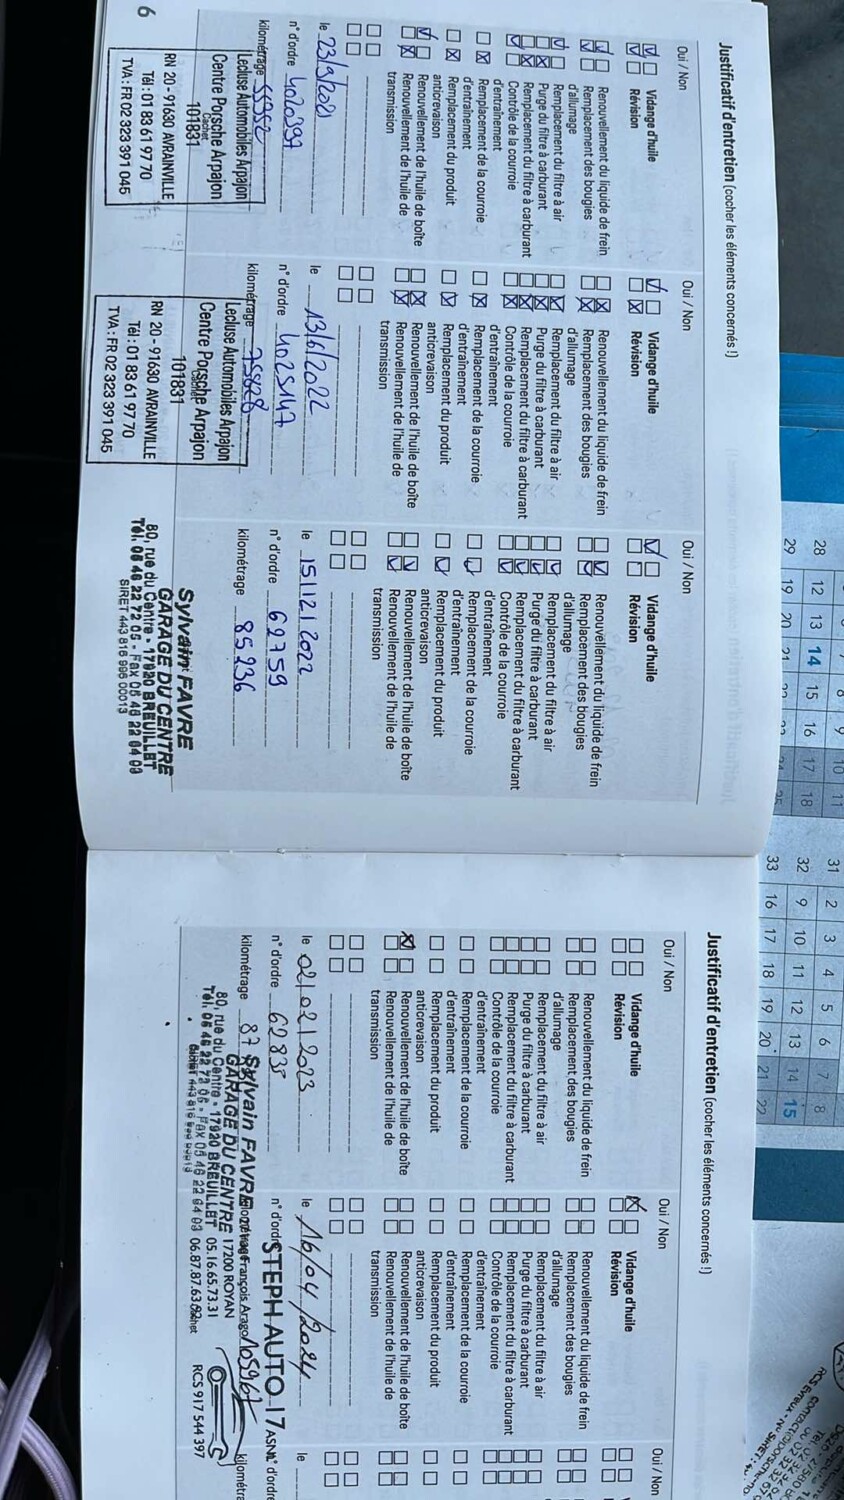 Justificatif d'entretien (cocher les éléments concernés !)
Oui / Non
Vidange d'huile
Révision
Renouvellement du liquide de frein
Remplacement des bougies
d'allumage
Remplacement du filtre à air
Purge du filtre à carburant
Remplacement du filtre à carburant
Contrôle de la courroie
d'entraînement
Remplacement de la courroie
d'entraînement
Remplacement du produit
anticrevaison
Renouvellement de l'huile de boîte
Renouvellement de l'huile de
transmission
le 23/3/2021
n° d'ordre 4020397
kilométrage 55752
Lecluse Automobiles Arpajon
Centre Porsche Arpajon
Cachet
101831
RN 20 - 91630 AVRAINVILLE
Tél : 01 83 61 97 70
TVA : FR 02 323 391 045
6
Oui / Non
Vidange d'huile
Révision
Renouvellement du liquide de frein
Remplacement des bougies
d'allumage
Remplacement du filtre à air
Purge du filtre à carburant
Remplacement du filtre à carburant
Contrôle de la courroie
d'entraînement
Remplacement de la courroie
d'entraînement
Remplacement du produit
anticrevaison
Renouvellement de l'huile de boîte
Renouvellement de l'huile de
transmission
le 13/6/2022
n° d'ordre 4025147
kilométrage 75828
Lecluse Automobiles Arpajon
Centre Porsche Arpajon
Cachet
101831
RN 20 - 91630 AVRAINVILLE
Tél : 01 83 61 97 70
TVA : FR 02 323 391 045
Oui / Non
Vidange d'huile
Révision
Renouvellement du liquide de frein
Remplacement des bougies
d'allumage
Remplacement du filtre à air
Purge du filtre à carburant
Remplacement du filtre à carburant
Contrôle de la courroie
d'entraînement
Remplacement de la courroie
d'entraînement
Remplacement du produit
anticrevaison
Renouvellement de l'huile de boîte
Renouvellement de l'huile de
transmission
le 15/12/2022
n° d'ordre 62759
kilométrage 85236
Sylvain FAVRE
GARAGE DU CENTRE
80, rue du Centre - 17920 BREUILLET
Tél. 05 46 22 72 05 - Fax 05 46 22 64 03
SIRET 443 816 996 00013
Justificatif d'entretien (cocher les éléments concernés !)
Oui / Non
Vidange d'huile
Révision
Renouvellement du liquide de frein
Remplacement des bougies
d'allumage
Remplacement du filtre à air
Purge du filtre à carburant
Remplacement du filtre à carburant
Contrôle de la courroie
d'entraînement
Remplacement de la courroie
d'entraînement
Remplacement du produit
anticrevaison
Renouvellement de l'huile de boîte
Renouvellement de l'huile de
transmission
le 02/02/2023
n° d'ordre 62835
kilométrage 87
Sylvain FAVRE
GARAGE DU CENTRE
80, rue du Centre - 17920 BREUILLET
Tél. 05 46 22 72 05 - Fax 05 46 22 64 03
Oui / Non
Vidange d'huile
Révision
Renouvellement du liquide de frein
Remplacement des bougies
d'allumage
Remplacement du filtre à air
Purge du filtre à carburant
Remplacement du filtre à carburant
Contrôle de la courroie
d'entraînement
Remplacement de la courroie
d'entraînement
Remplacement du produit
anticrevaison
Renouvellement de l'huile de boîte
Renouvellement de l'huile de
transmission
le 16/04/2024
n° d'ordre
STEPH AUTO 17
François Arago 105967
17200 ROYAN
05.16.65.73.31
06.87.87.63
RCS 917 544 397
Oui / Non
le
n° d'ordre
28 12 13 14 15 16 17 18
29 19 20 21
31 2 3 4 5 6 7 8
32 9 10 11 12 13 14 15
33 16 17 18 19 20 21 22